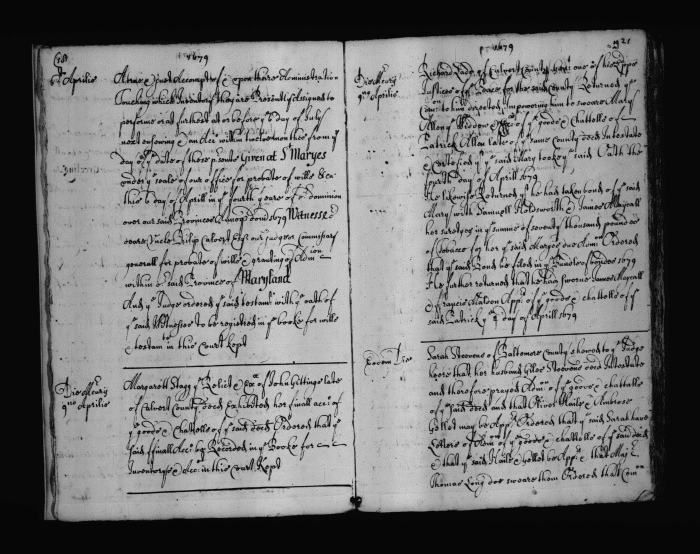 1679
6th Aprilis
A true & just Accompt of & upon theire Administration
Touching which Inventory they are Presently Assigned to
performe at or farthest at or before ye 6 day of July
next ensewing & an Acct within twelve months from ye
day of ye date of these p̱sents Given at St Maryes
under ye seale of our office for probate of wills &ca
this 6 day of Aprill in ye fourth yeare of or dominion
over our said Province Annoq dom 1679 Witnesse or
deare Uncle Philip Calvert Esqr our judge or Commissary
generall for probate of wills & granting of Adm̃
within or said Province of Maryland
And ye Judge ordered ye said testamt with ye oath of
ye said Witnesses to be registred in ye booke for wills
& testamts in this Court Kept
Die Mercurij
9no Aprilis
Margarett Stagg ye Relict & Exx of John Gittings late
of Calvert County decd Exhibited her finall acct of
ye goods & Chattells of ye said decd Ordered that ye
said finall Acct be Recorded in ye Booke for
Inventorys & Acc: in this Court Kept
1679
21
Die Mercurij
9no Aprilis
Richard Ladd of Calvert County
Justices of Peace for the said County Returned ye
Comr to him directed Impowering him to sweare Mary
Allen ye Widdow of ye goods & chattells of
Patrick Allen late of ye same County decd Intestate
& Certifieing ye said Mary tooke ye said Oath the
fourth day of Aprill 1679
He likewise Returned ye he had taken bond of ye said
Mary with Samuell Holdsworth & James Maycall
her suretyes in ye summe of seventy thousand pounds
of tobacco for her ye said Maryes due Adm̃ Ordered
that ye said Bond be filed in ye Bundle of bonds 1679
He further returned that he had sworne James Maycall
& Francis Maldon Appr. of ye goods & chattells of ye
said Patrick ye day of Aprill 1679
Eodem Die
Sarah Steevens of Baltemore County shewed to ye Judge
here that her husband Giles Steevens decd Intestate
and therefore prayed Admr of ye goods & chattells
of ye said decd and that Oliver Haile & Ambrose
Gellet may be Appr. Ordered that ye said Sarah have
Letters of Adm of ye goods & chattells of ye said decd
& that ye said Haile & Gellet be Appr. & that Majr
Thomas Long doe sweare them Ordered that Com̃